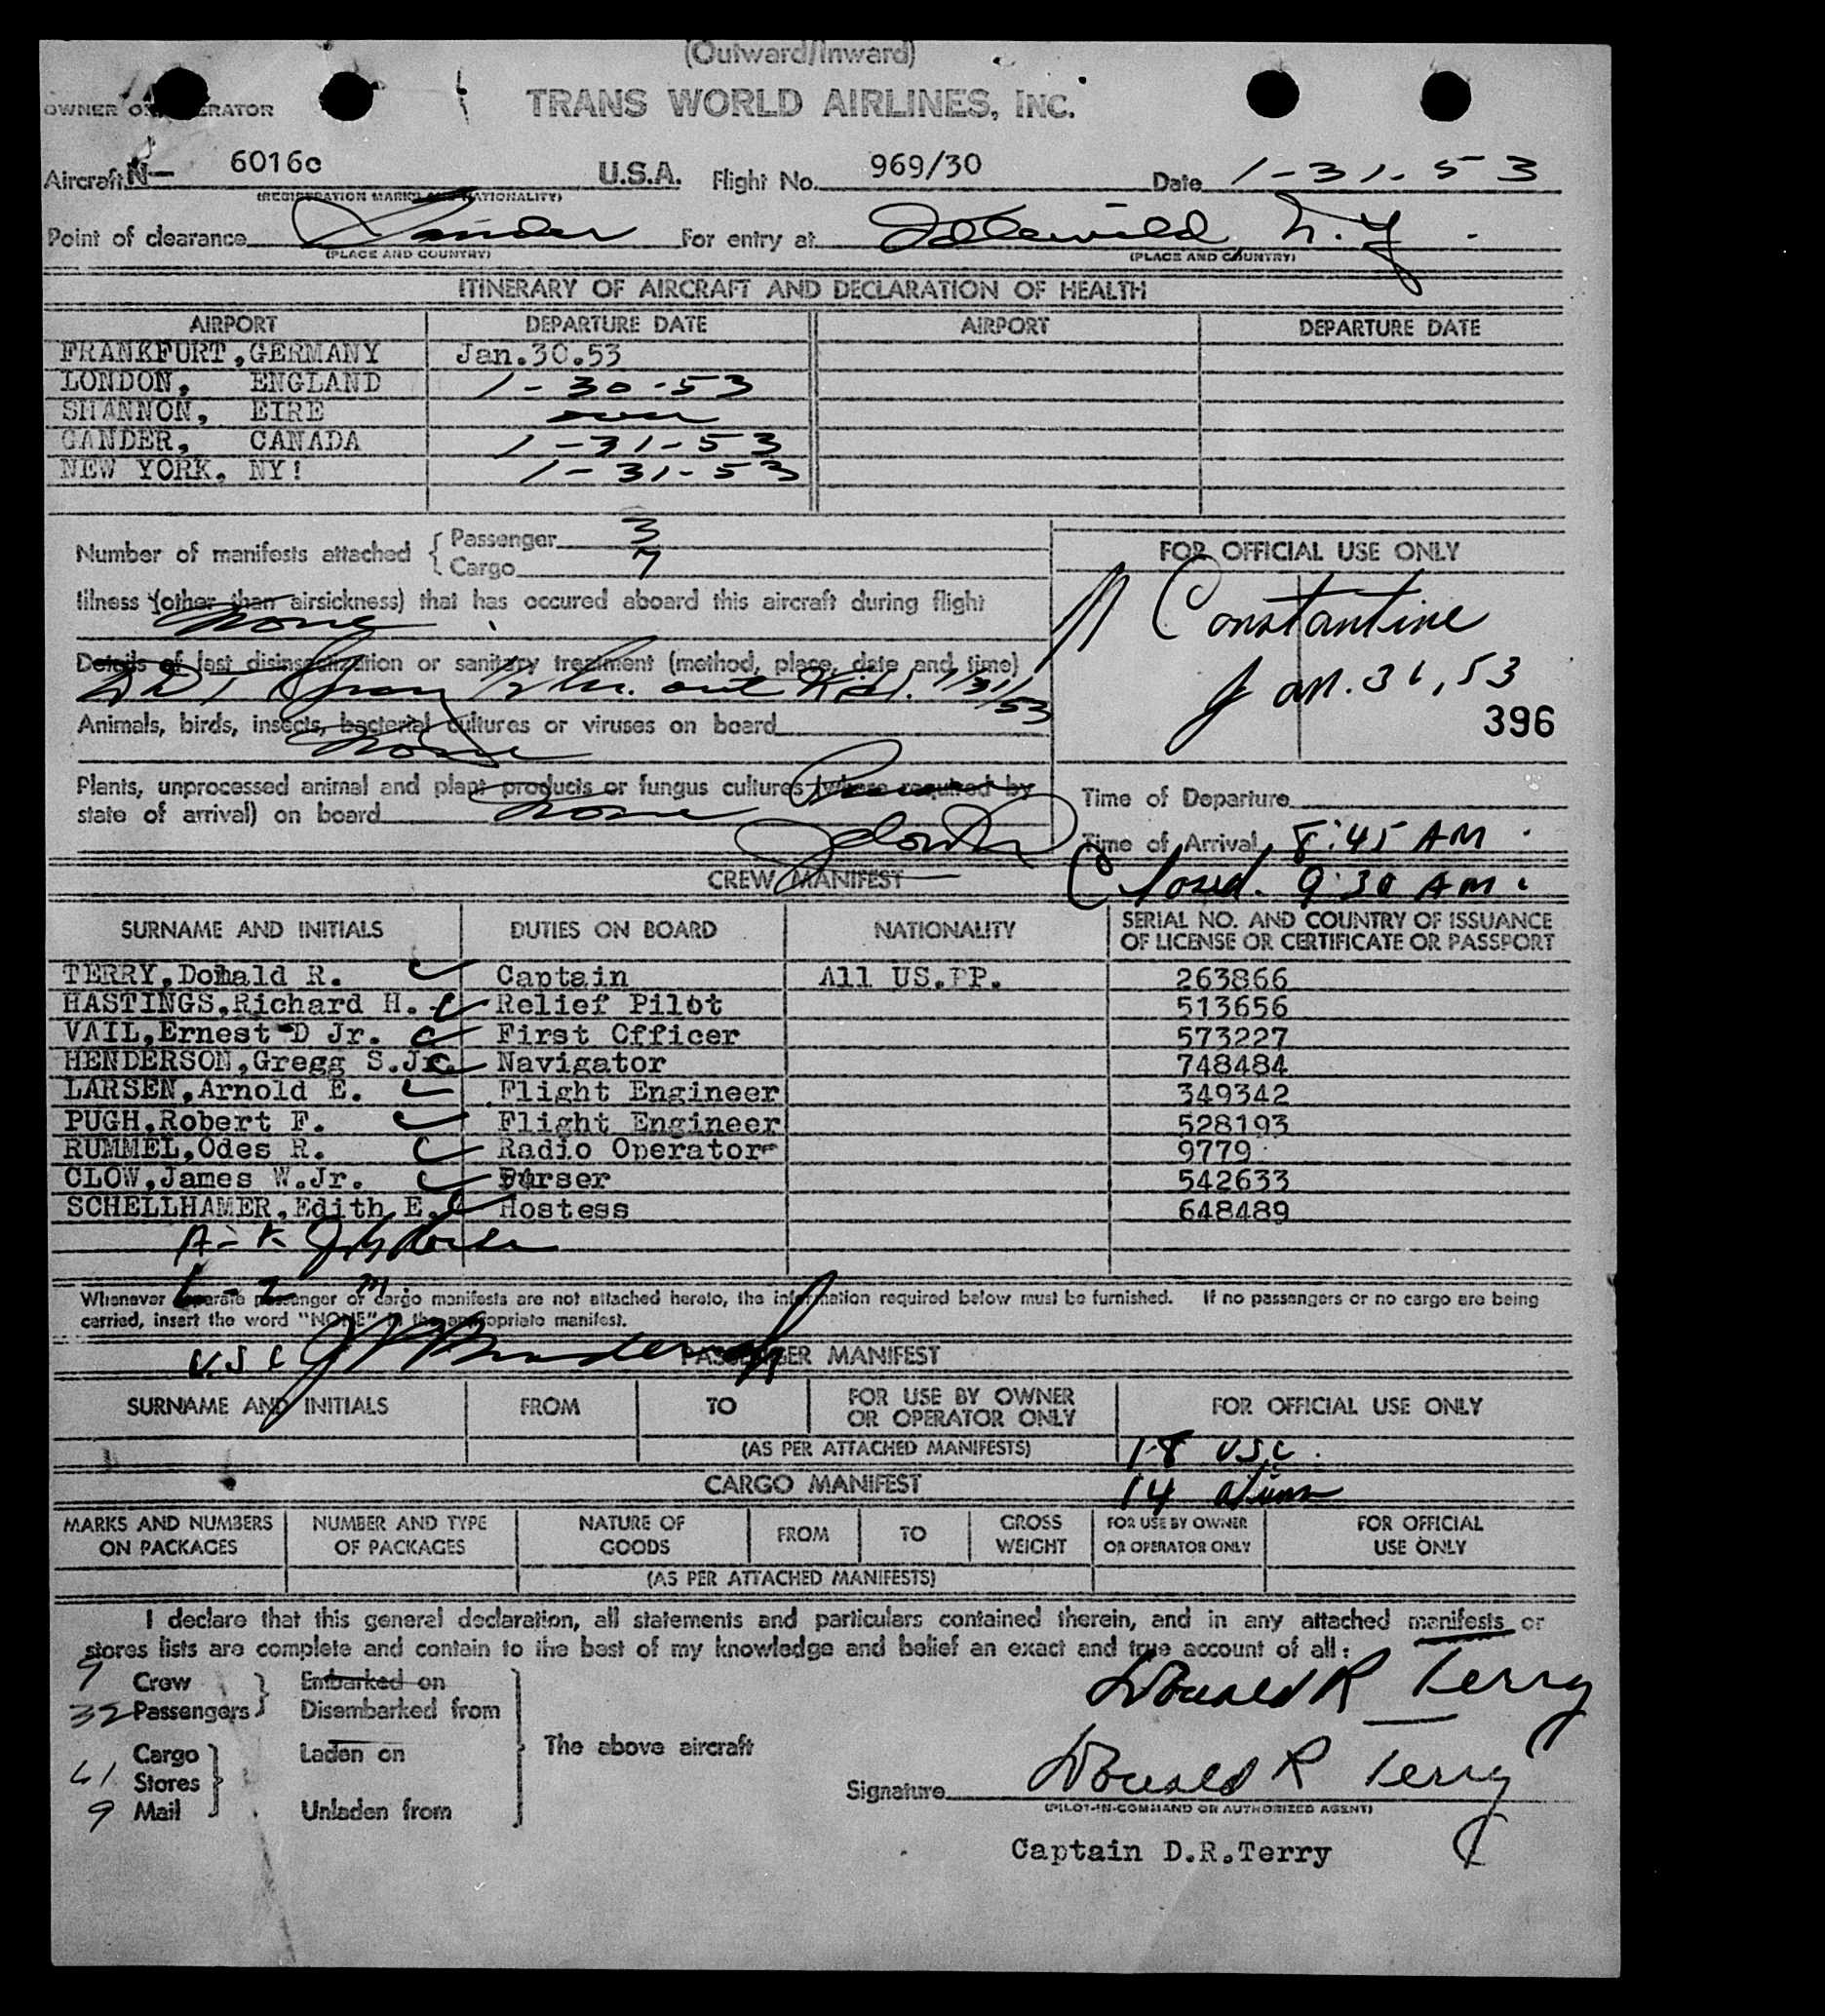 (Outward/Inward)
OWNER OR OPERATOR TRANS WORLD AIRLINES, INC.
Aircraft N- 6016c U.S.A. Flight No. 969/30 Date 1-31-53
(REGISTRATION MARKS AND NATIONALITY)
Point of clearance Gander For entry at Idlewild, N.Y.
(PLACE AND COUNTRY) (PLACE AND COUNTRY)
ITINERARY OF AIRCRAFT AND DECLARATION OF HEALTH
AIRPORT DEPARTURE DATE AIRPORT DEPARTURE DATE
FRANKFURT,GERMANY Jan.30.53
LONDON, ENGLAND 1-30-53
SHANNON, EIRE over
GANDER, CANADA 1-31-53
NEW YORK. NY! 1-31-53
Number of manifests attached { Passenger 3
Cargo 7
FOR OFFICIAL USE ONLY
Illness (other than airsickness) that has occured aboard this aircraft during flight
None
Constantine
Details of last disinsectization or sanitary treatment (method, place, date and time)
DDT Spray 1/2 hr. out 1/31/53
Jan. 31, 53
Animals, birds, insects, bacterial cultures or viruses on board
None
396
Plants, unprocessed animal and plant products or fungus cultures (where required by
state of arrival) on board None
Time of Departure
Time of Arrival 8:45 AM
Closed. 9:30 AM.
CREW MANIFEST
SURNAME AND INITIALS DUTIES ON BOARD NATIONALITY SERIAL NO. AND COUNTRY OF ISSUANCE
OF LICENSE OR CERTIFICATE OR PASSPORT
TERRY,Donald R. Captain All US.PP. 263866
HASTINGS,Richard H. Relief Pilot 513656
VAIL,Ernest D Jr. First Officer 573227
HENDERSON,Gregg S.Jr. Navigator 748484
LARSEN,Arnold E. Flight Engineer 349342
PUGH,Robert F. Flight Engineer 528193
RUMMEL,Odes R. Radio Operator 9779
CLOW,James W.Jr. Purser 542633
SCHELLHAMER,Edith E. Hostess 648489
Whenever separate passenger or cargo manifests are not attached hereto, the information required below must be furnished. If no passengers or no cargo are being
carried, insert the word "NONE" in the appropriate manifest.
PASSENGER MANIFEST
SURNAME AND INITIALS FROM TO FOR USE BY OWNER
OR OPERATOR ONLY FOR OFFICIAL USE ONLY
(AS PER ATTACHED MANIFESTS) 18 USC.
CARGO MANIFEST 14
MARKS AND NUMBERS
ON PACKAGES NUMBER AND TYPE
OF PACKAGES NATURE OF
GOODS FROM TO GROSS
WEIGHT FOR USE BY OWNER
OR OPERATOR ONLY FOR OFFICIAL
USE ONLY
(AS PER ATTACHED MANIFESTS)
I declare that this general declaration, all statements and particulars contained therein, and in any attached manifests or
stores lists are complete and contain to the best of my knowledge and belief an exact and true account of all:
9 Crew Embarked on
32 Passengers Disembarked from
Donald R Terry
Cargo Laden on The above aircraft
61 Stores
9 Mail Unladen from
Signature Donald R Terry
(PILOT-IN-COMMAND OR AUTHORIZED AGENT)
Captain D.R.Terry